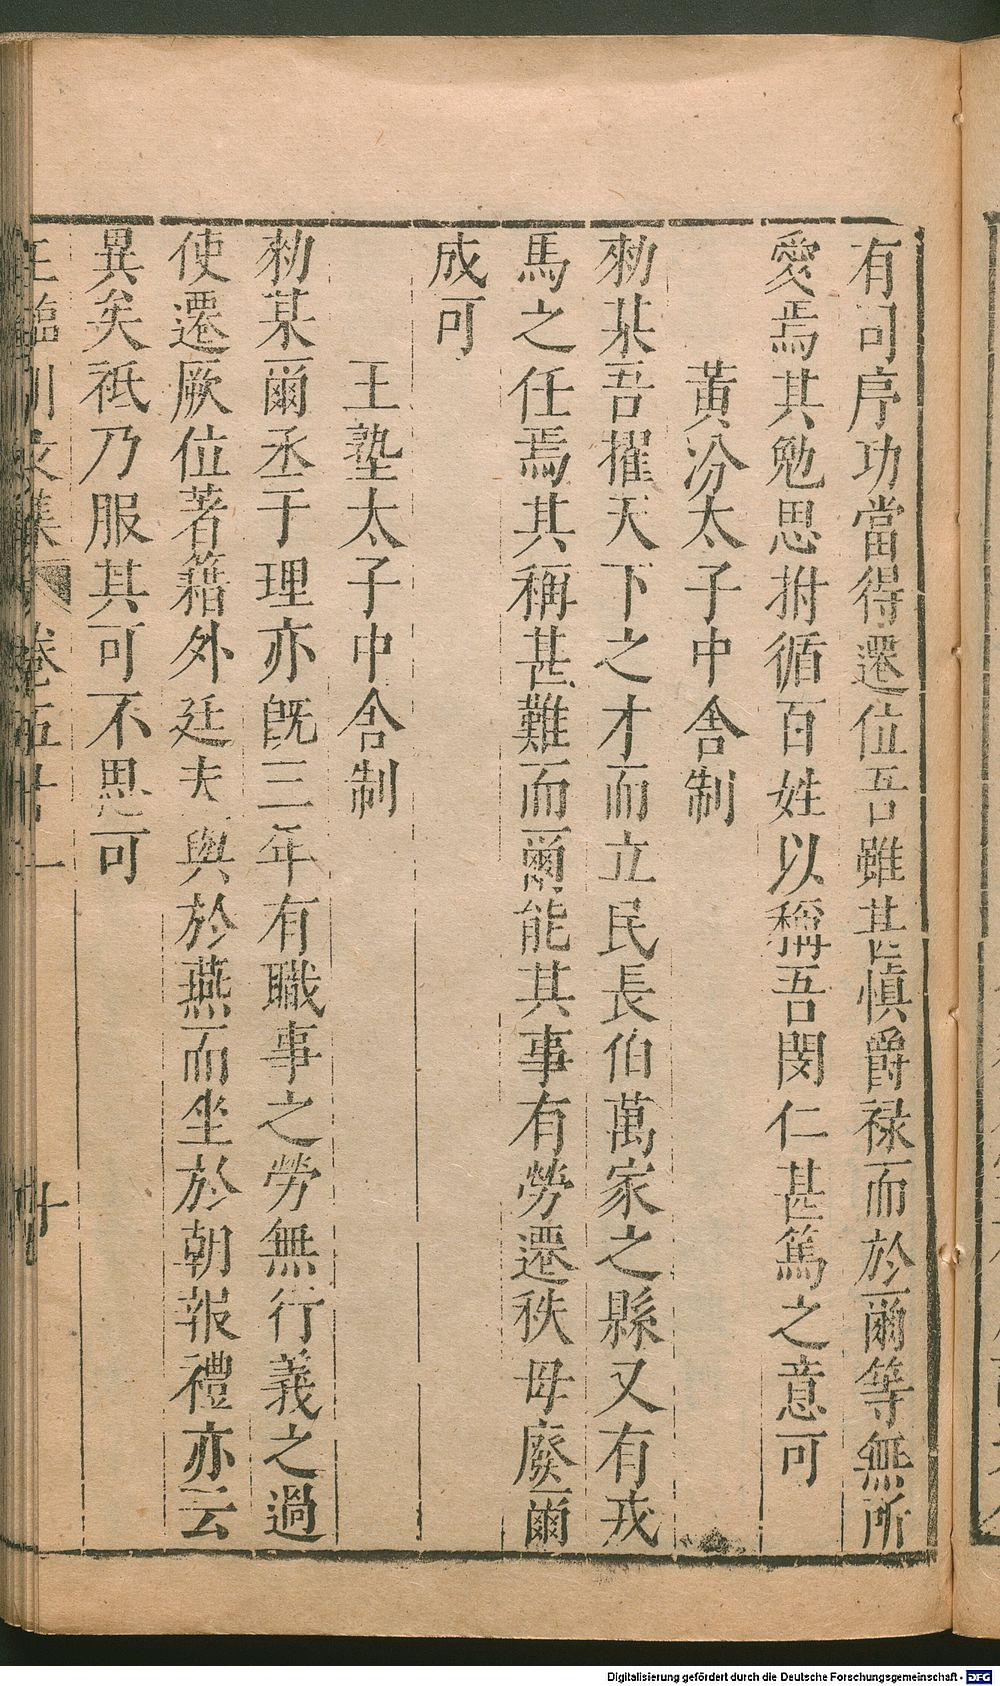 有司序功當得遷位吾雖甚慎爵祿而於爾等無所
愛焉其勉思拊循百姓以稱吾閔仁甚篤之意可
黃汾太子中舍制
勑某吾擢天下之才而立民長伯萬家之縣又有戎
馬之任焉其稱甚難而爾能其事有勞遷秩毋廢爾
成可
王塾太子中舍制
勑某爾丞于理亦旣三年有職事之勞無行義之過
使遷厥位著籍外廷夫與於燕而坐於朝報禮亦云
異矣祗乃服其可不思可
王臨川文集 卷五十一
十
Digitalisierung gefördert durch die Deutsche Forschungsgemeinschaft - DFG